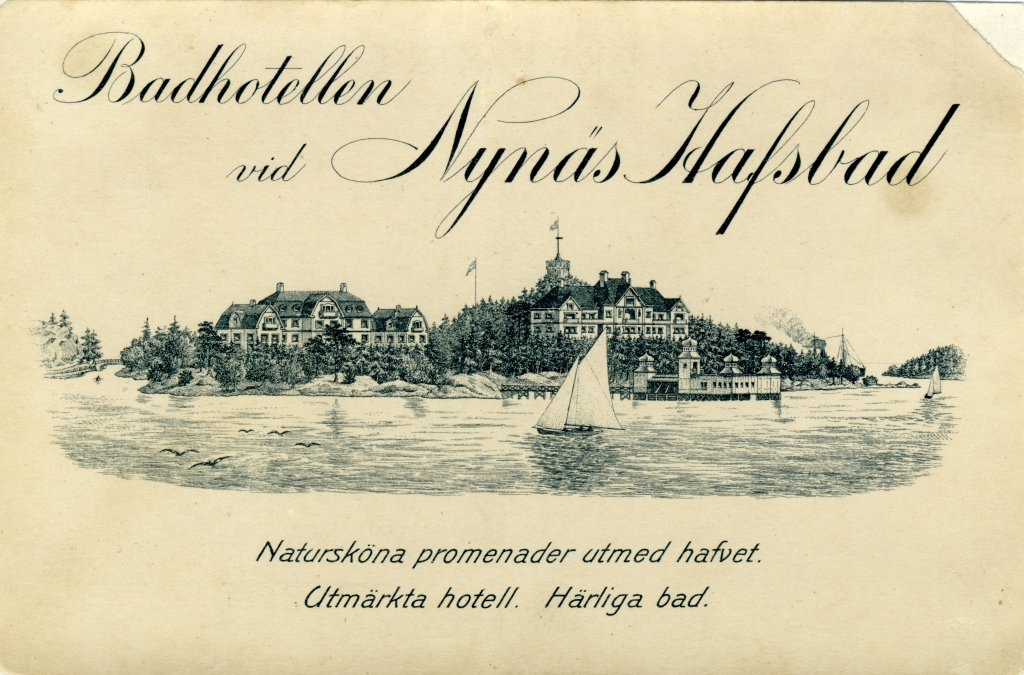 Badhotellen
vid Nynäs Hafsbad
Natursköna promenader utmed hafvet.
Utmärkta hotell. Härliga bad.